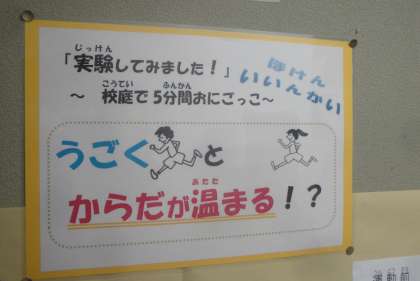 じっけん
「実験してみました！」
ほけん
いいんかい
こうてい ふんかん
～ 校庭で5分間おにごっこ～
うごくと
あたた
からだが温まる！？